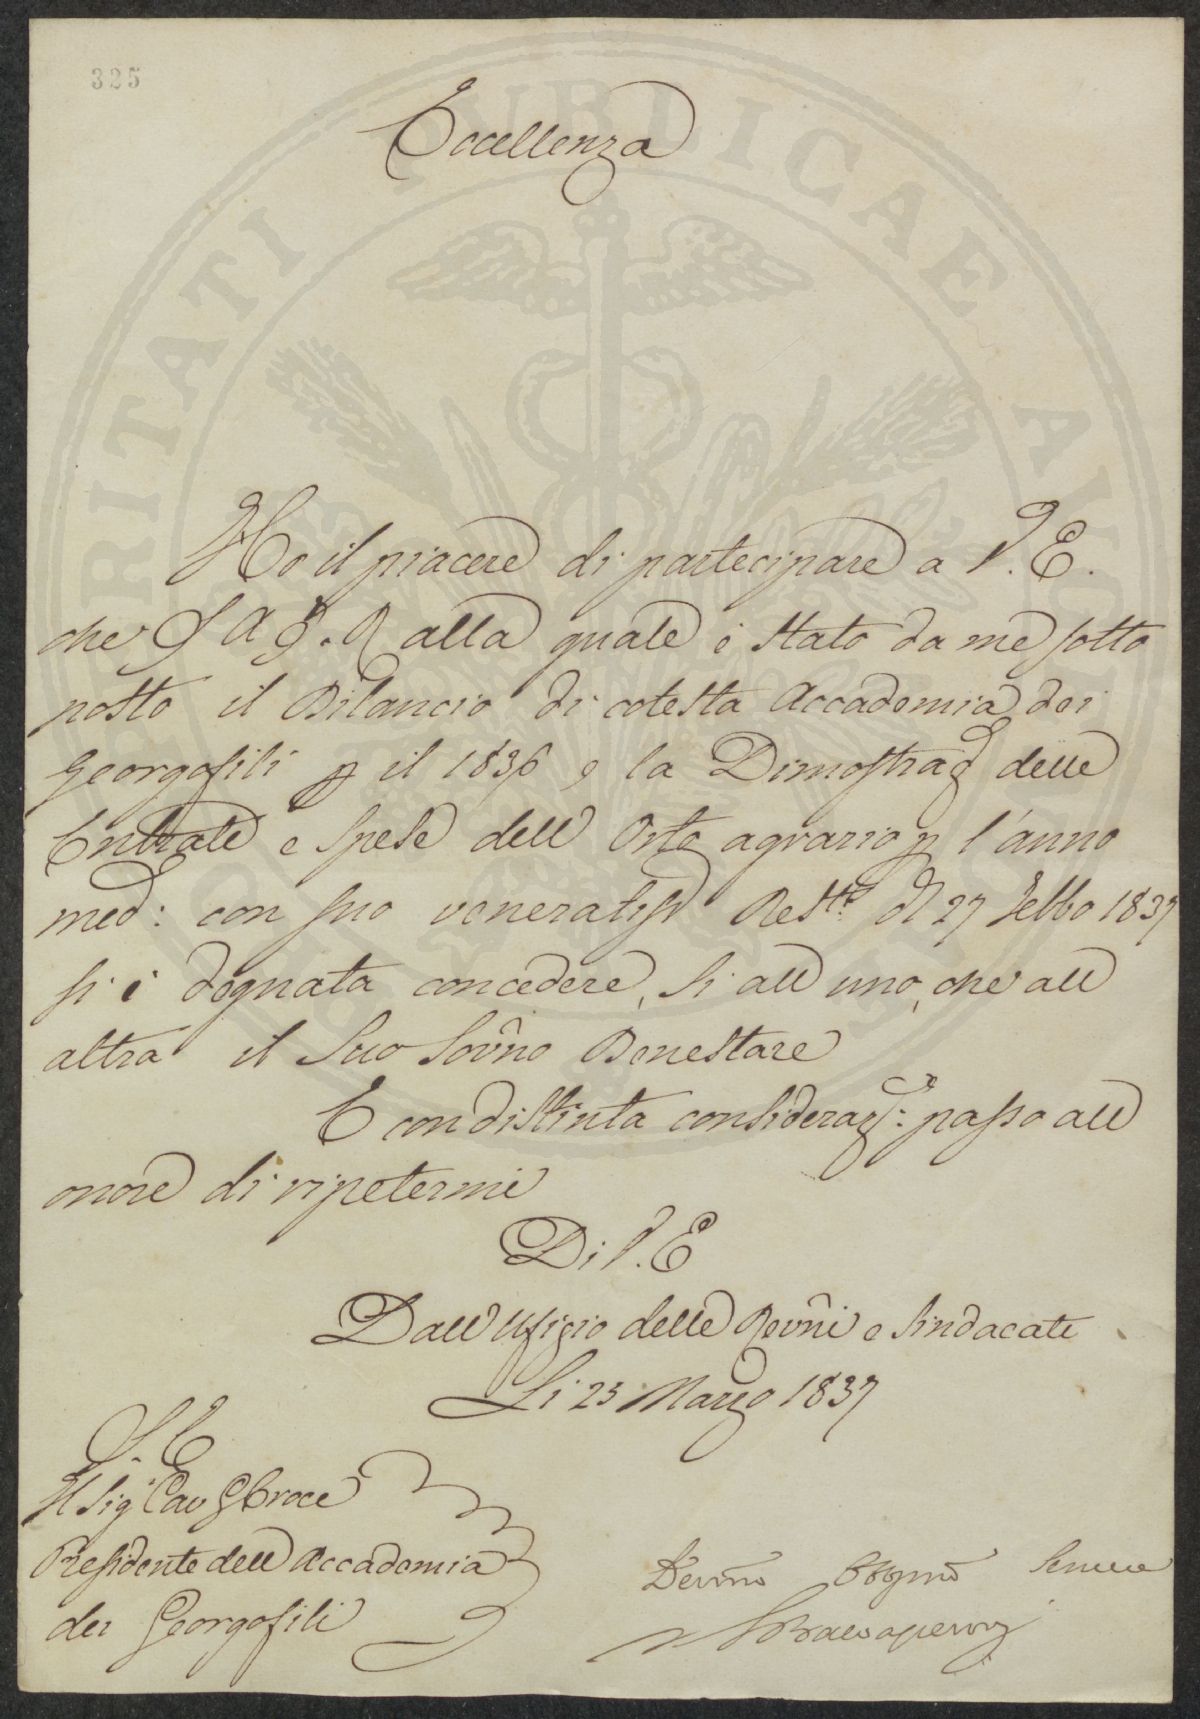 325
Eccellenza
Ho il piacere di partecipare a V. E.
che S A J. R alla quale è stato da me sotto
posto il Bilancio di cotesta Accademia dei
Georgofili p il 1836 e la Dimostraz delle
Entrate e spese dell Orto agrario p l'anno
med: con suo veneratiss Rest.to di 27 Febbo 1837
si è degnata concedere, sì all uno, che all
altra il Suo Sovno Benestare
E con distinta consideraz:e passo all
onore di ripetermi
Di V. E
Dall'Ufizio delle Revni e Sindacati
Li 23 Marzo 1837
S. E
Il Sig Cav G Croce
Presidente dell Accademia
dei Georgofili
PUBLICAE